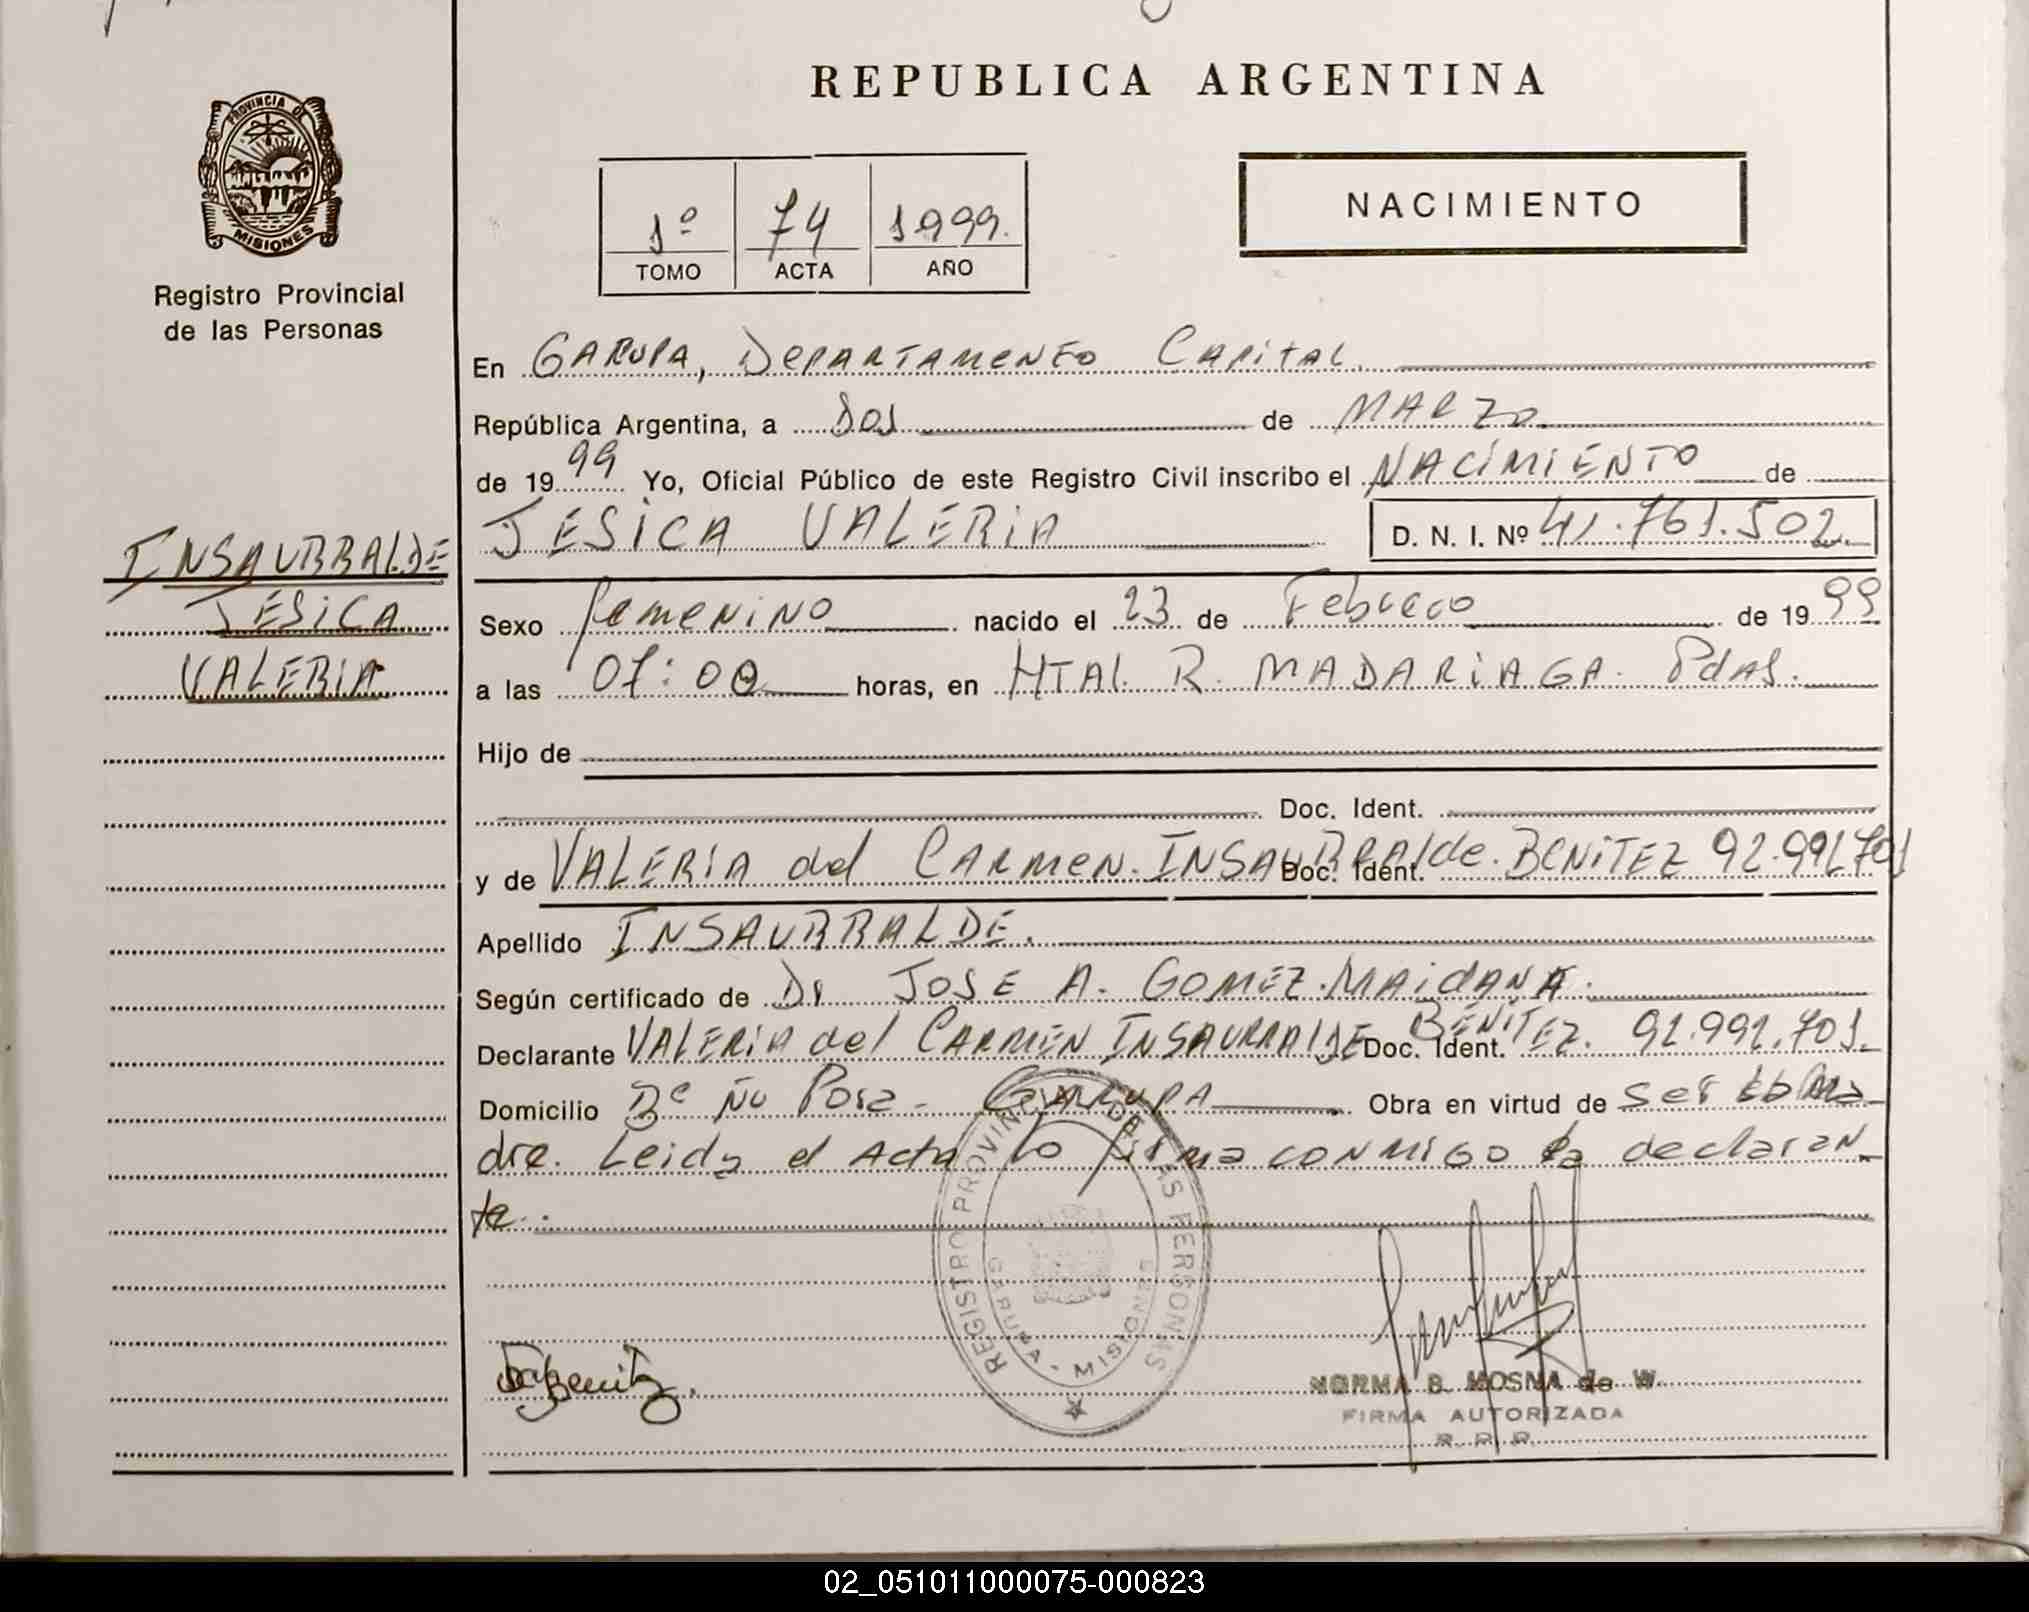 REPUBLICA ARGENTINA
PROVINCIA DE
MISIONES
Registro Provincial
de las Personas
1º 74 1999.
TOMO ACTA AÑO
NACIMIENTO
INSAURRALDE
JESICA
VALERIA
En GARUPA, DEPARTAMENTO CAPITAL.
República Argentina, a DOS de MARZO
de 1999 Yo, Oficial Público de este Registro Civil inscribo el NACIMIENTO de
JESICA VALERIA D. N. I. Nº 41.761.502.
Sexo femenino nacido el 23 de Febrero de 1999
a las 07:00 horas, en HTAL R. MADARIAGA. Pdas.
Hijo de
Doc. Ident.
y de VALERIA del CARMEN INSAURRALde. BENITEZ Doc. Ident. 92.992.701
Apellido INSAURRALDE.
Según certificado de Dr JOSE A. GOMEZ MAIDANA.
Declarante VALERIA del CARMEN INSAURRALDE BENITEZ. Doc. Ident. 92.992.701.
Domicilio Bº Ñu Pora - GARUPA Obra en virtud de ser la ma
dre. Leida el Acta lo firma CONMIGO la declaran
te.
REGISTRO PROVINCIAL DE LAS PERSONAS
GARUPA - MISIONES
NORMA B. MOSNA de W.
FIRMA AUTORIZADA
R. P. P.
02_051011000075-000823